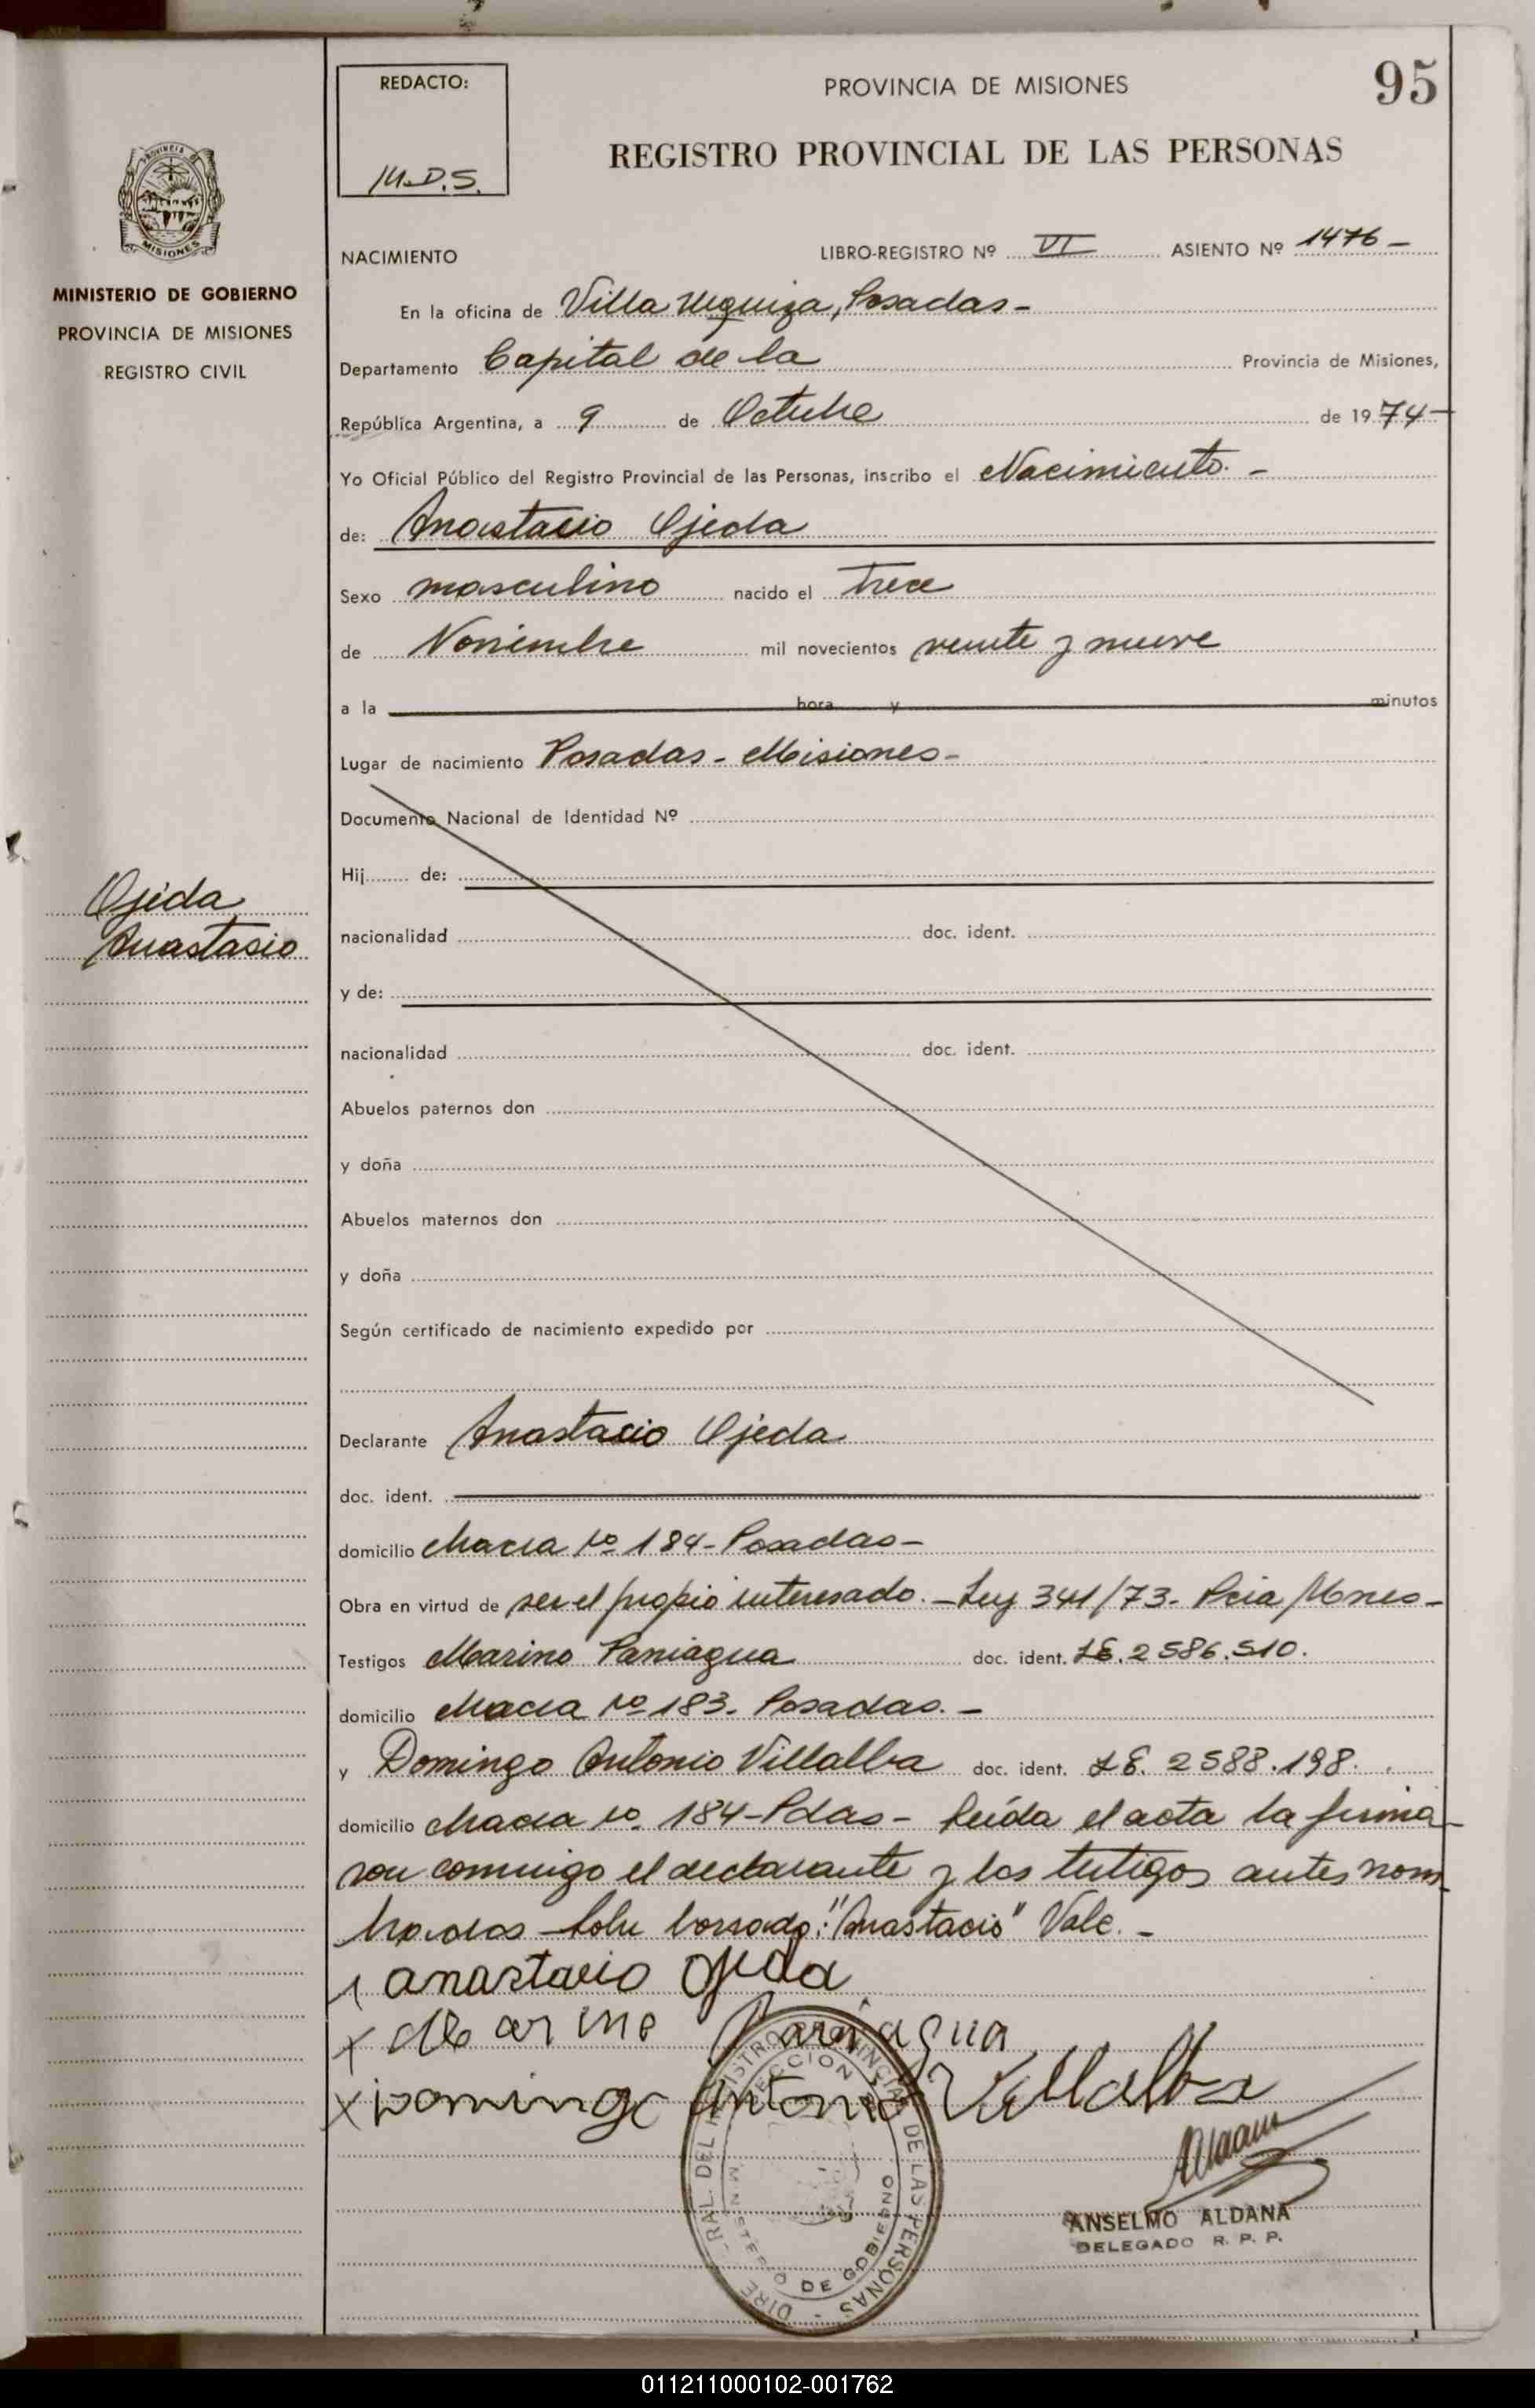 REDACTO:
M.D.S.
PROVINCIA DE MISIONES
95
REGISTRO PROVINCIAL DE LAS PERSONAS
PROVINCIA DE
MISIONES
MINISTERIO DE GOBIERNO
PROVINCIA DE MISIONES
REGISTRO CIVIL
NACIMIENTO LIBRO-REGISTRO Nº VI ASIENTO Nº 1476-
En la oficina de Villa Urquiza, Posadas-
Departamento Capital de la Provincia de Misiones,
República Argentina, a 9 de Octubre de 1974-
Yo Oficial Público del Registro Provincial de las Personas, inscribo el Nacimiento.-
de: Anastacio Ojeda
Sexo masculino nacido el trece
de Noviembre mil novecientos veinte y nueve
a la hora y minutos
Lugar de nacimiento Posadas - Misiones-
Documento Nacional de Identidad Nº
Hij de:
Ojeda
Anastasio
nacionalidad doc. ident.
y de:
nacionalidad doc. ident.
Abuelos paternos don
y doña
Abuelos maternos don
y doña
Según certificado de nacimiento expedido por
Declarante Anastacio Ojeda
doc. ident.
domicilio Nº 184-Posadas-
Obra en virtud de ser el propio interesado.-Ley 341/73- Pcia Mnes-
Testigos Marino Paniagua doc. ident. LE. 2586.510.
domicilio Nº 183. Posadas.-
y Domingo Antonio Villalba doc. ident. LE. 2588.198.
domicilio Nº 184-Pdas- Leída el acta la firma
ron conmigo el declarante y los testigos antes nom
brados - Sobre borrado: "Anastacio" Vale.-
x anastacio Ojeda
x Marino Paniagua
x Domingo Antonio Villalba
DIRE RAL. DEL REGISTRO PROVINCIAL DE LAS PERSONAS
MINISTERIO DE GOBIERNO
ANSELMO ALDANA
DELEGADO R. P. P.
011211000102-001762